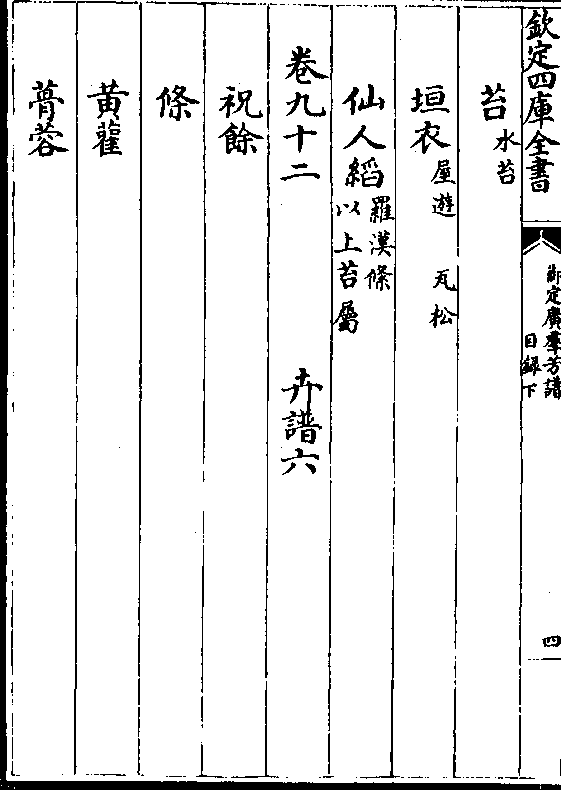 欽定四庫全書
御定廣羣芳譜
目録下
四
苔 水苔
垣衣 屋遊 瓦松
仙人縚 羅漢條 以上苔屬
卷九十二 卉譜六
祝餘
條
黃雚
蓇蓉